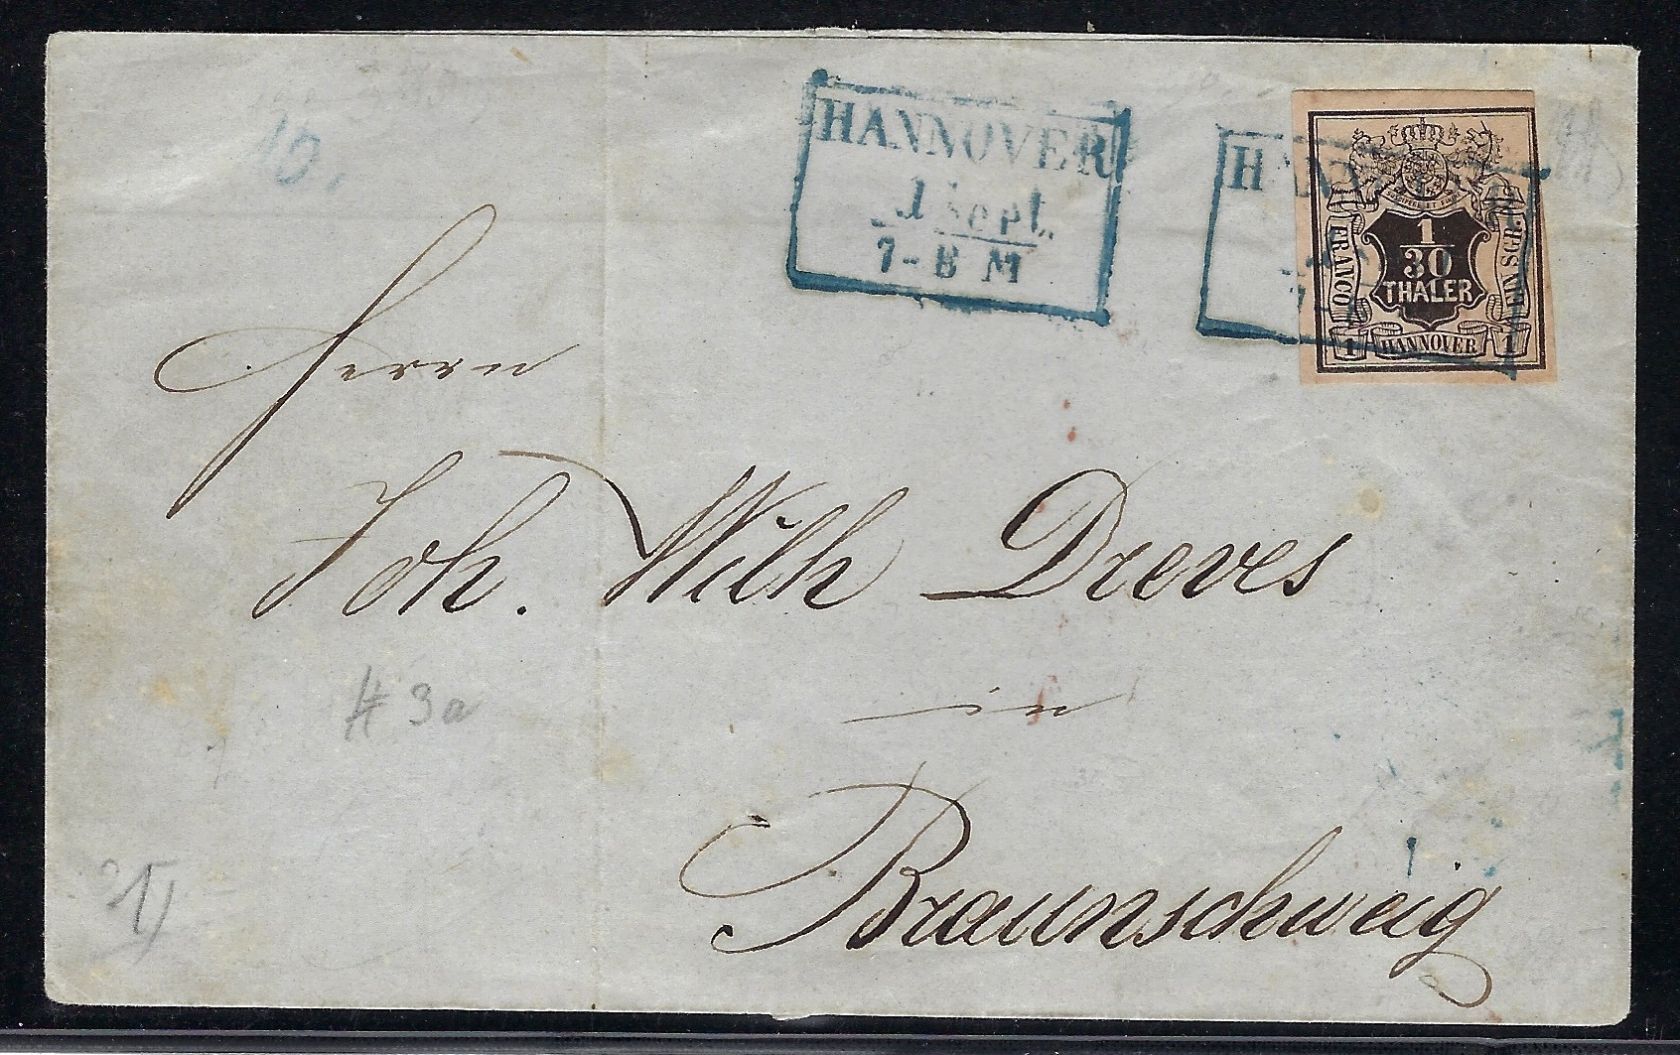 10.
HANNOVER
1 Sept.
7-8 M
HAN
1
30
THALER
FRANCO
EIN SGR.
1 HANNOVER 1
Herrn
Joh. Wilh Dreves
# 3a
in
Braunschweig